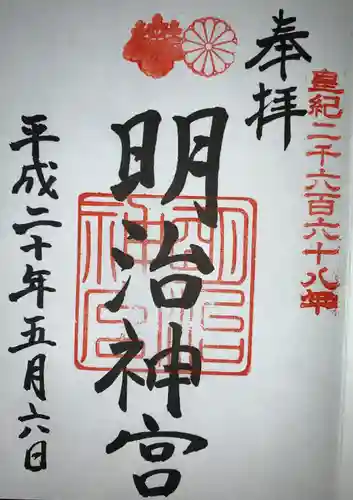 奉拝
皇紀二千六百六十八年
明治神宮
明治神宮
平成二十年五月六日